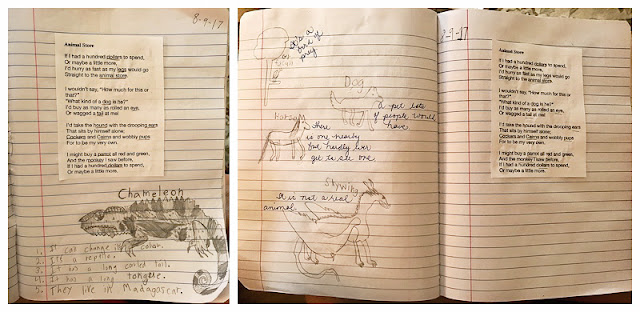 8-9-17
Animal Store
If I had a hundred dollars to spend,
Or maybe a little more,
I'd hurry as fast as my legs would go
Straight to the animal store.
I wouldn't say, "How much for this or
that?"
"What kind of a dog is he?"
I'd buy as many as rolled an eye,
Or wagged a tail at me!
I'd take the hound with the drooping ears
That sits by himself alone;
Cockers and Cairns and wobbly pups
For to be my very own.
I might buy a parrot all red and green,
And the monkey I saw before,
If I had a hundred dollars to spend,
Or maybe a little more.
Chameleon
1. It can change its color.
2. It's a reptile.
3. It has a long coiled tail.
4. It has a long tongue.
5. They live in Madagascar.
it's a
bird of
prey
Dog
a pet lots
of people would
have
Horse
there
is one nearby
but hardly ever
get to see one
SkyWing
It is not a real
animal.
8-9-17
Animal Store
If I had a hundred dollars to spend,
Or maybe a little more,
I'd hurry as fast as my legs would go
Straight to the animal store.
I wouldn't say, "How much for this or
that?"
"What kind of a dog is he?"
I'd buy as many as rolled an eye,
Or wagged a tail at me!
I'd take the hound with the drooping ears
That sits by himself alone;
Cockers and Cairns and wobbly pups
For to be my very own.
I might buy a parrot all red and green,
And the monkey I saw before,
If I had a hundred dollars to spend,
Or maybe a little more.